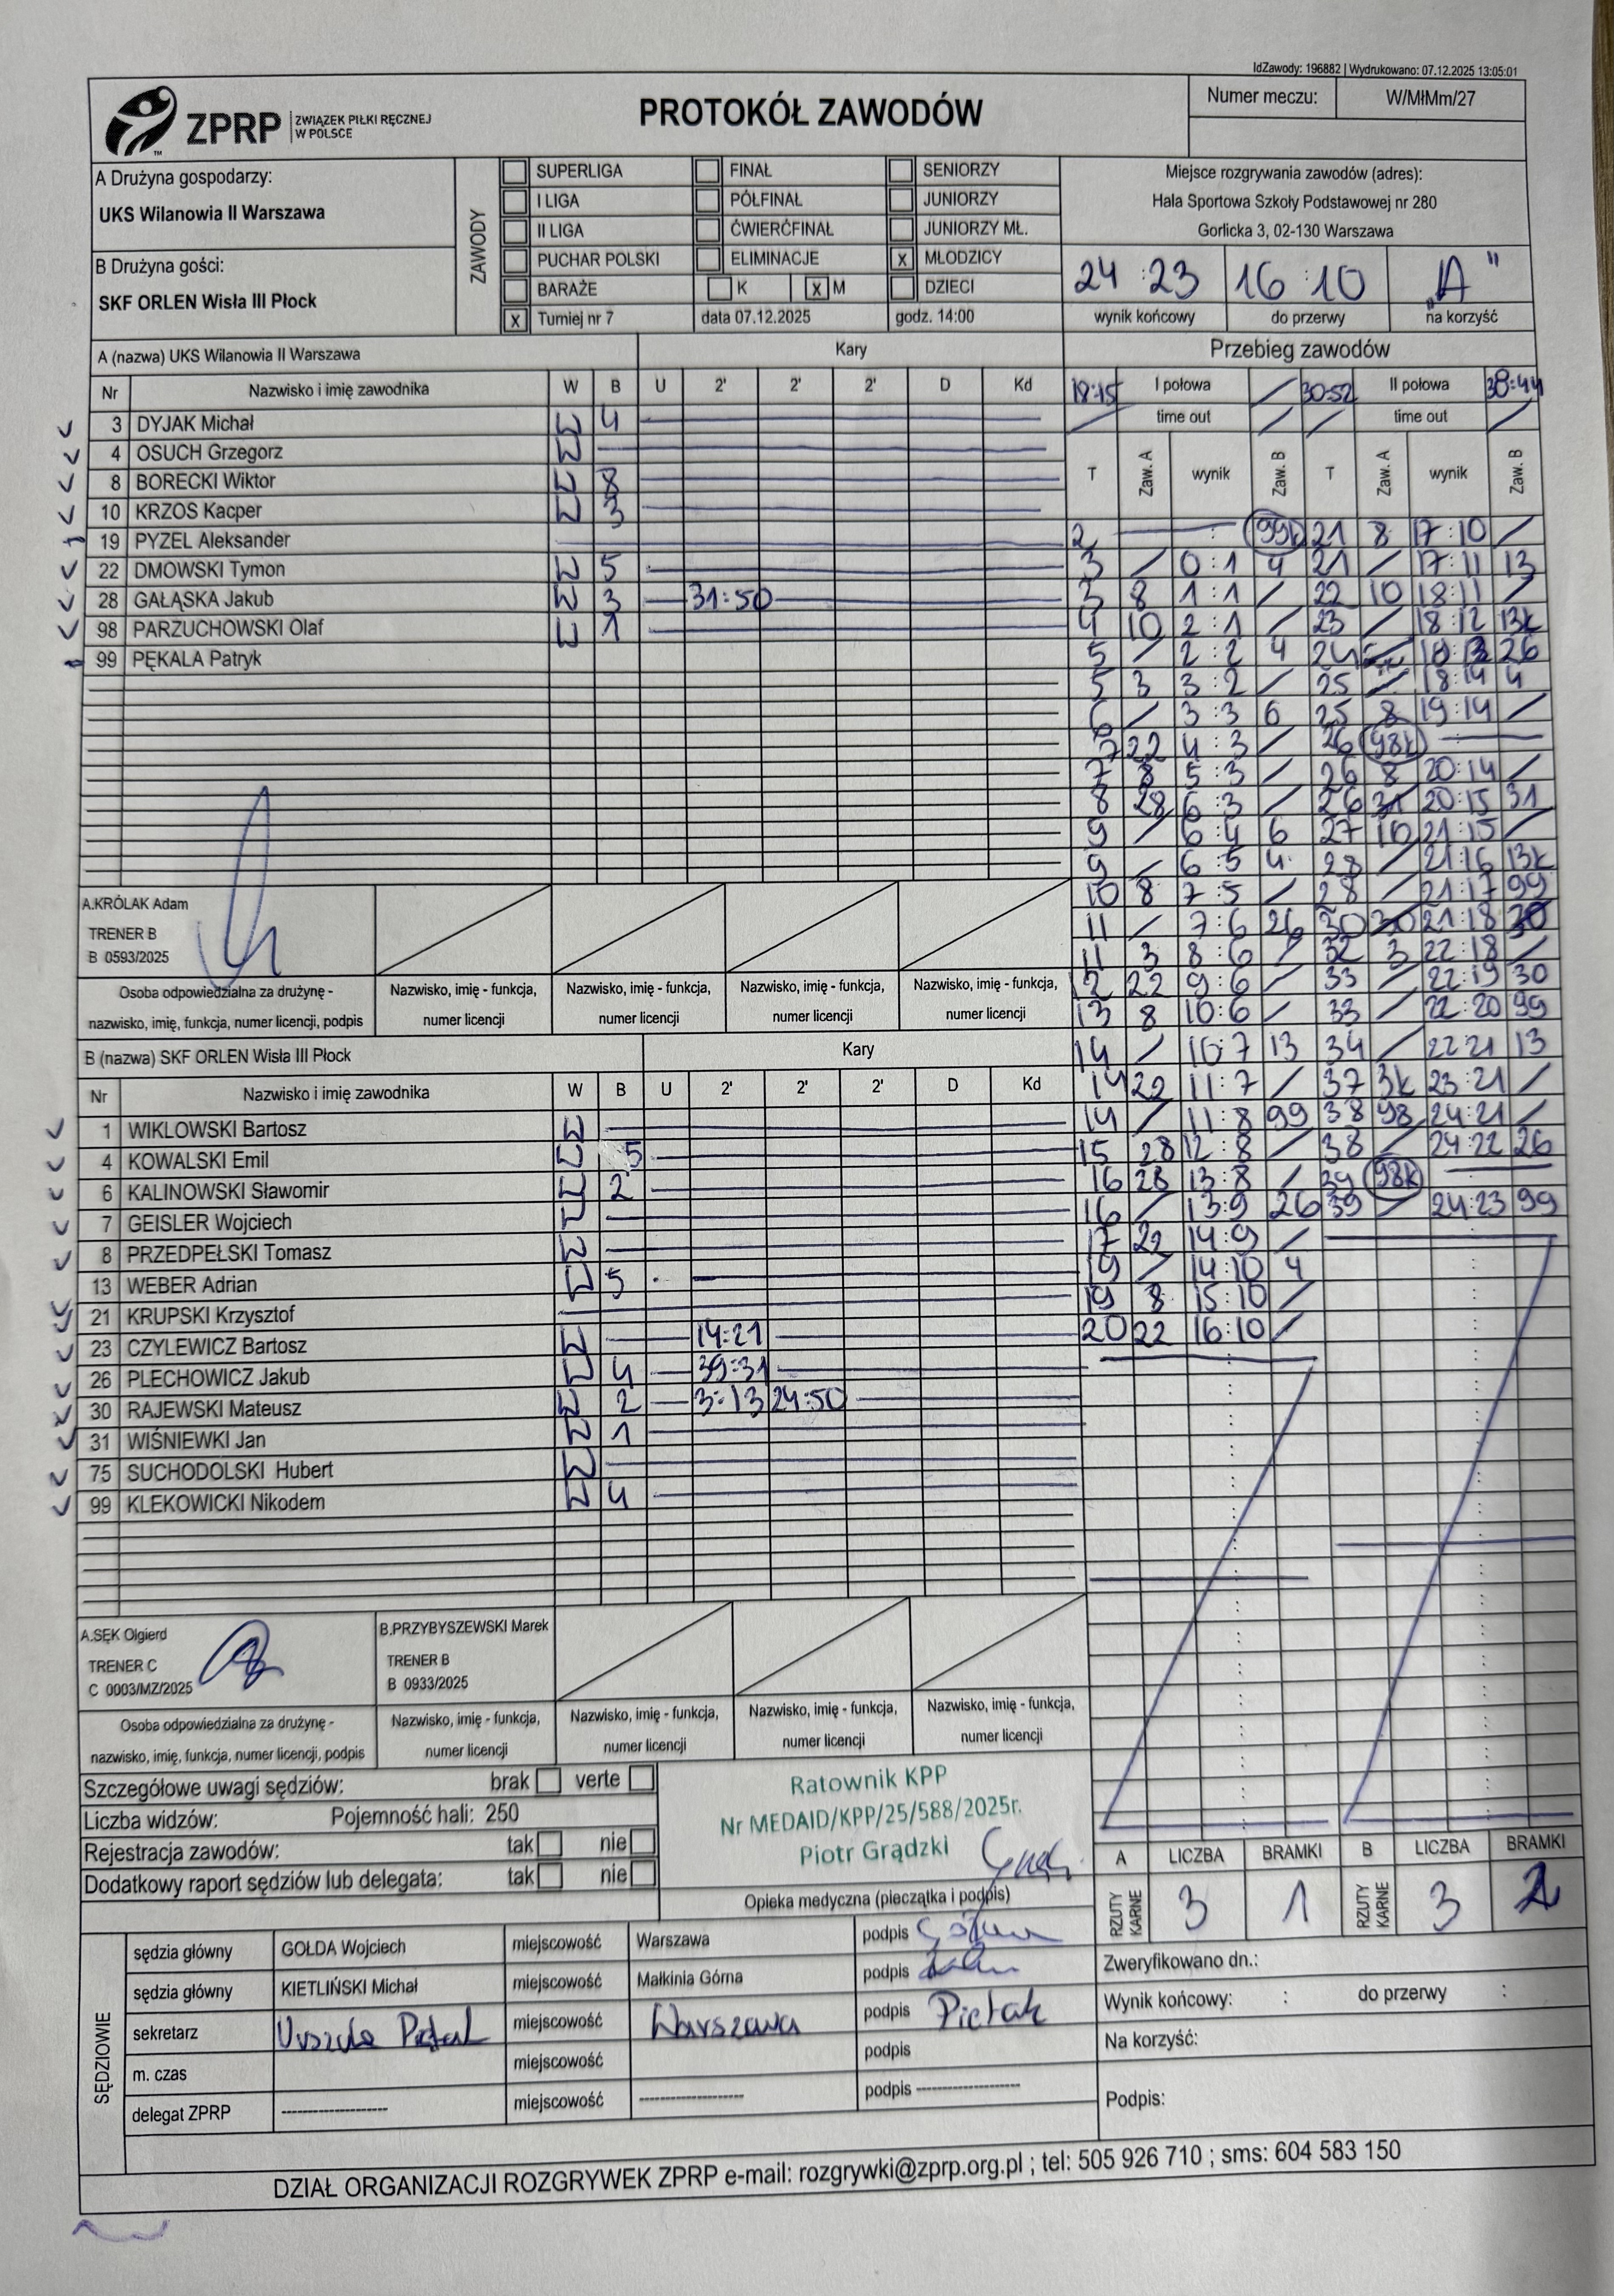 IdZawody: 196882 | Wydrukowano: 07.12.2025 13:05:01
ZPRP ZWIĄZEK PIŁKI RĘCZNEJ W POLSCE
PROTOKÓŁ ZAWODÓW
Numer meczu: W/MłMm/27
A Drużyna gospodarzy:
UKS Wilanowia II Warszawa
B Drużyna gości:
SKF ORLEN Wisła III Płock
ZAWODY
SUPERLIGA FINAŁ SENIORZY
I LIGA PÓŁFINAŁ JUNIORZY
II LIGA ĆWIERĆFINAŁ JUNIORZY MŁ.
PUCHAR POLSKI ELIMINACJE X MŁODZICY
BARAŻE K X M DZIECI
X Turniej nr 7 data 07.12.2025 godz. 14:00
Miejsce rozgrywania zawodów (adres):
Hala Sportowa Szkoły Podstawowej nr 280
Gorlicka 3, 02-130 Warszawa
24:23 16:10 „A"
wynik końcowy do przerwy na korzyść
A (nazwa) UKS Wilanowia II Warszawa Kary
Nr Nazwisko i imię zawodnika W B U 2' 2' 2' D Kd
3 DYJAK Michał W 4
4 OSUCH Grzegorz W
8 BORECKI Wiktor W 8
10 KRZOS Kacper W 3
19 PYZEL Aleksander
22 DMOWSKI Tymon W 5
28 GAŁĄSKA Jakub W 3 31:50
98 PARZUCHOWSKI Olaf W 1
99 PĘKALA Patryk
A.KRÓLAK Adam
TRENER B
B 0593/2025
Osoba odpowiedzialna za drużynę - nazwisko, imię, funkcja, numer licencji, podpis
Nazwisko, imię - funkcja, numer licencji
Nazwisko, imię - funkcja, numer licencji
Nazwisko, imię - funkcja, numer licencji
Nazwisko, imię - funkcja, numer licencji
B (nazwa) SKF ORLEN Wisła III Płock Kary
Nr Nazwisko i imię zawodnika W B U 2' 2' 2' D Kd
1 WIKLOWSKI Bartosz W
4 KOWALSKI Emil W 5
6 KALINOWSKI Sławomir W 2
7 GEISLER Wojciech W
8 PRZEDPEŁSKI Tomasz W
13 WEBER Adrian W 5
21 KRUPSKI Krzysztof
23 CZYLEWICZ Bartosz W 14:21
26 PLECHOWICZ Jakub W 4 39:31
30 RAJEWSKI Mateusz W 2 3:13 24:50
31 WIŚNIEWKI Jan W 1
75 SUCHODOLSKI Hubert W
99 KLEKOWICKI Nikodem W 4
A.SĘK Olgierd
TRENER C
C 0003/MZ/2025
B.PRZYBYSZEWSKI Marek
TRENER B
B 0933/2025
Osoba odpowiedzialna za drużynę - nazwisko, imię, funkcja, numer licencji, podpis
Nazwisko, imię - funkcja, numer licencji
Nazwisko, imię - funkcja, numer licencji
Nazwisko, imię - funkcja, numer licencji
Nazwisko, imię - funkcja, numer licencji
Przebieg zawodów
18:15 I połowa / 30:52 II połowa 38:44
/ time out / / time out /
T Zaw. A wynik Zaw. B T Zaw. A wynik Zaw. B
2 — : 99k 21 8 17:10 /
3 / 0:1 4 21 / 17:11 13
3 8 1:1 / 22 10 18:11 /
4 10 2:1 / 23 / 18:12 13k
5 / 2:2 4 24 18:13 26
5 3 3:2 / 25 / 18:14 4
6 / 3:3 6 25 8 19:14 /
7 22 4:3 / 26 98k —
7 8 5:3 / 26 8 20:14 /
8 28 6:3 / 26 20:15 31
9 / 6:4 6 27 10 21:15 /
9 / 6:5 4 28 / 21:16 13k
10 8 7:5 / 28 / 21:17 99
11 / 7:6 26 30 21:18 30
11 3 8:6 / 32 3 22:18 /
12 22 9:6 / 33 / 22:19 30
13 8 10:6 / 33 / 22:20 99
14 / 10:7 13 34 / 22:21 13
14 22 11:7 / 37 3k 23:21 /
14 / 11:8 99 38 98 24:21 /
15 28 12:8 / 38 / 24:22 26
16 28 13:8 / 39 98k —
16 / 13:9 26 39 / 24:23 99
17 22 14:9 /
19 / 14:10 4
19 8 15:10 /
20 22 16:10 /
Szczegółowe uwagi sędziów: brak verte
Liczba widzów: Pojemność hali: 250
Rejestracja zawodów: tak nie
Dodatkowy raport sędziów lub delegata: tak nie
Ratownik KPP
Nr MEDAID/KPP/25/588/2025r.
Piotr Grądzki
Opieka medyczna (pieczątka i podpis)
A LICZBA BRAMKI B LICZBA BRAMKI
RZUTY KARNE 3 1 RZUTY KARNE 3 2
SĘDZIOWIE
sędzia główny GOŁDA Wojciech miejscowość Warszawa podpis
sędzia główny KIETLIŃSKI Michał miejscowość Małkinia Górna podpis
sekretarz Urszula Piętak miejscowość Warszawa podpis Piętak
m. czas miejscowość podpis
delegat ZPRP ------------------- miejscowość ------------------- podpis -------------------
Zweryfikowano dn.:
Wynik końcowy: : do przerwy :
Na korzyść:
Podpis:
DZIAŁ ORGANIZACJI ROZGRYWEK ZPRP e-mail: rozgrywki@zprp.org.pl ; tel: 505 926 710 ; sms: 604 583 150